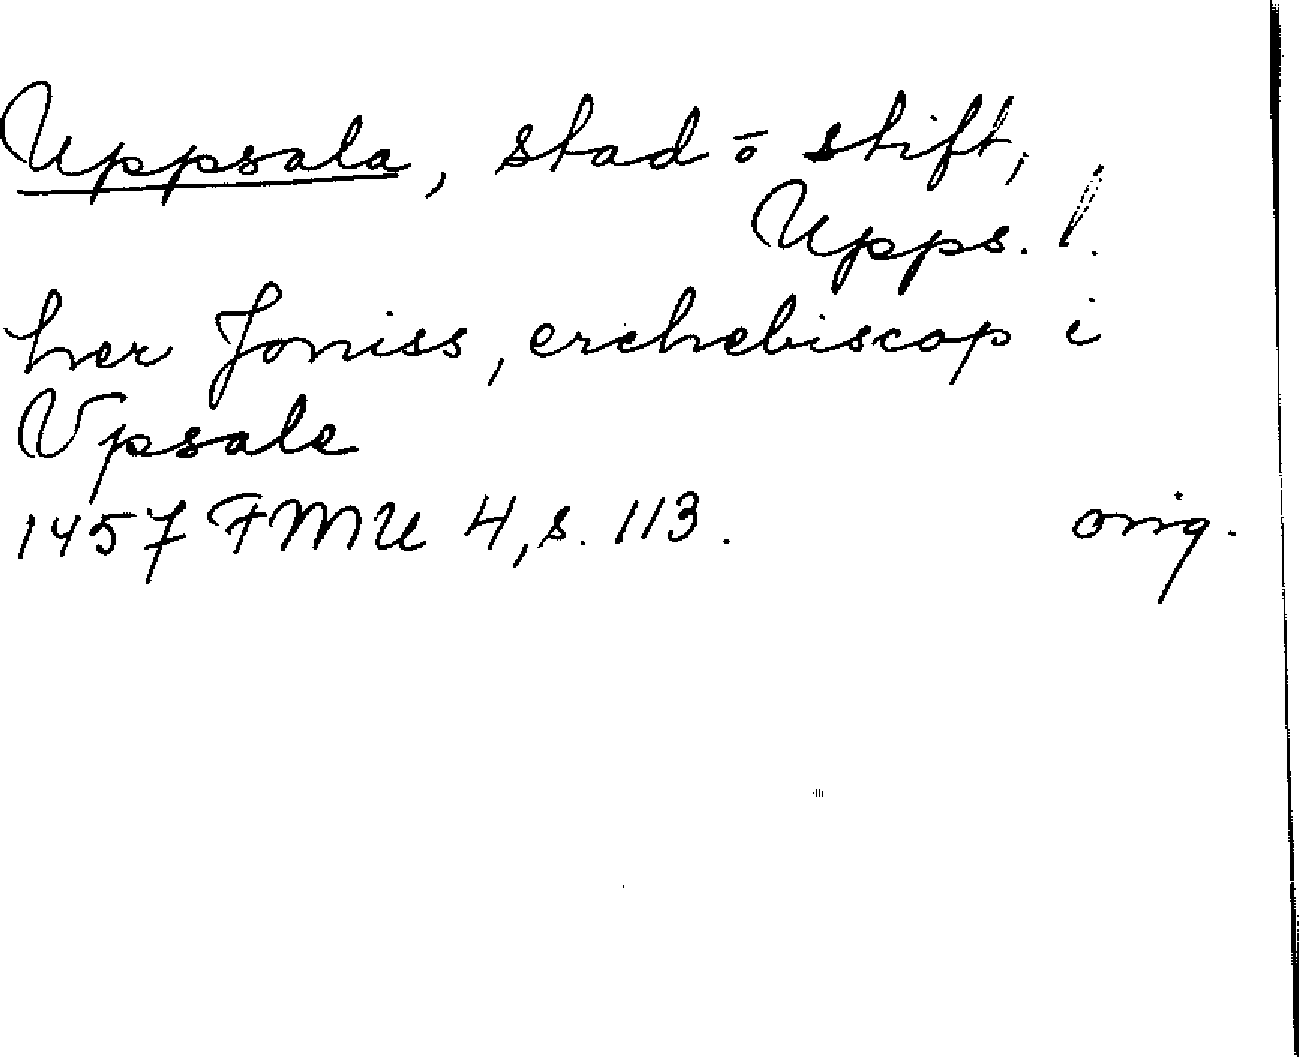 Uppsala, stad o stift,
Upps. l.
her Joniss, erchebiscop i
Vpsale
1457 FMU 4, s. 113. orig.